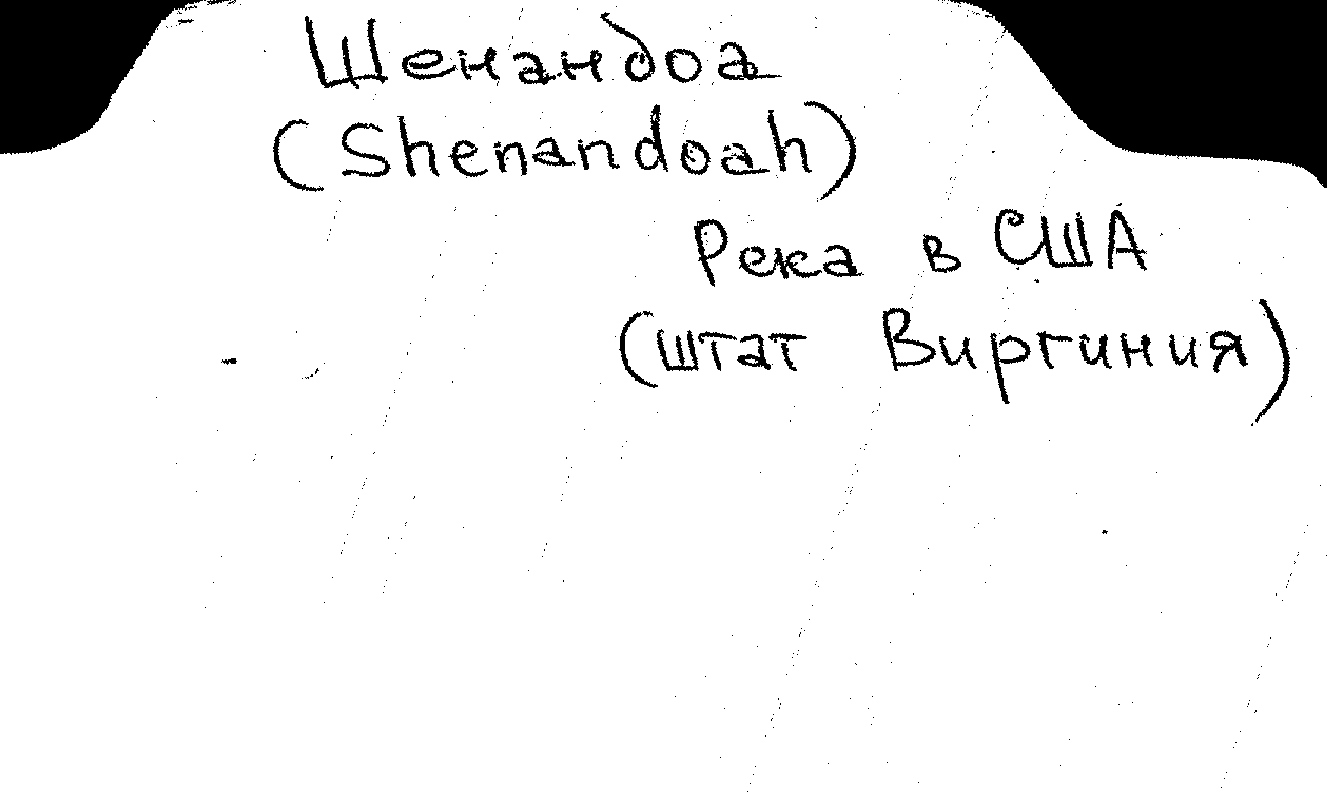 Шенандоа
(Shenandoah)
Река в США
(штат Виргиния)